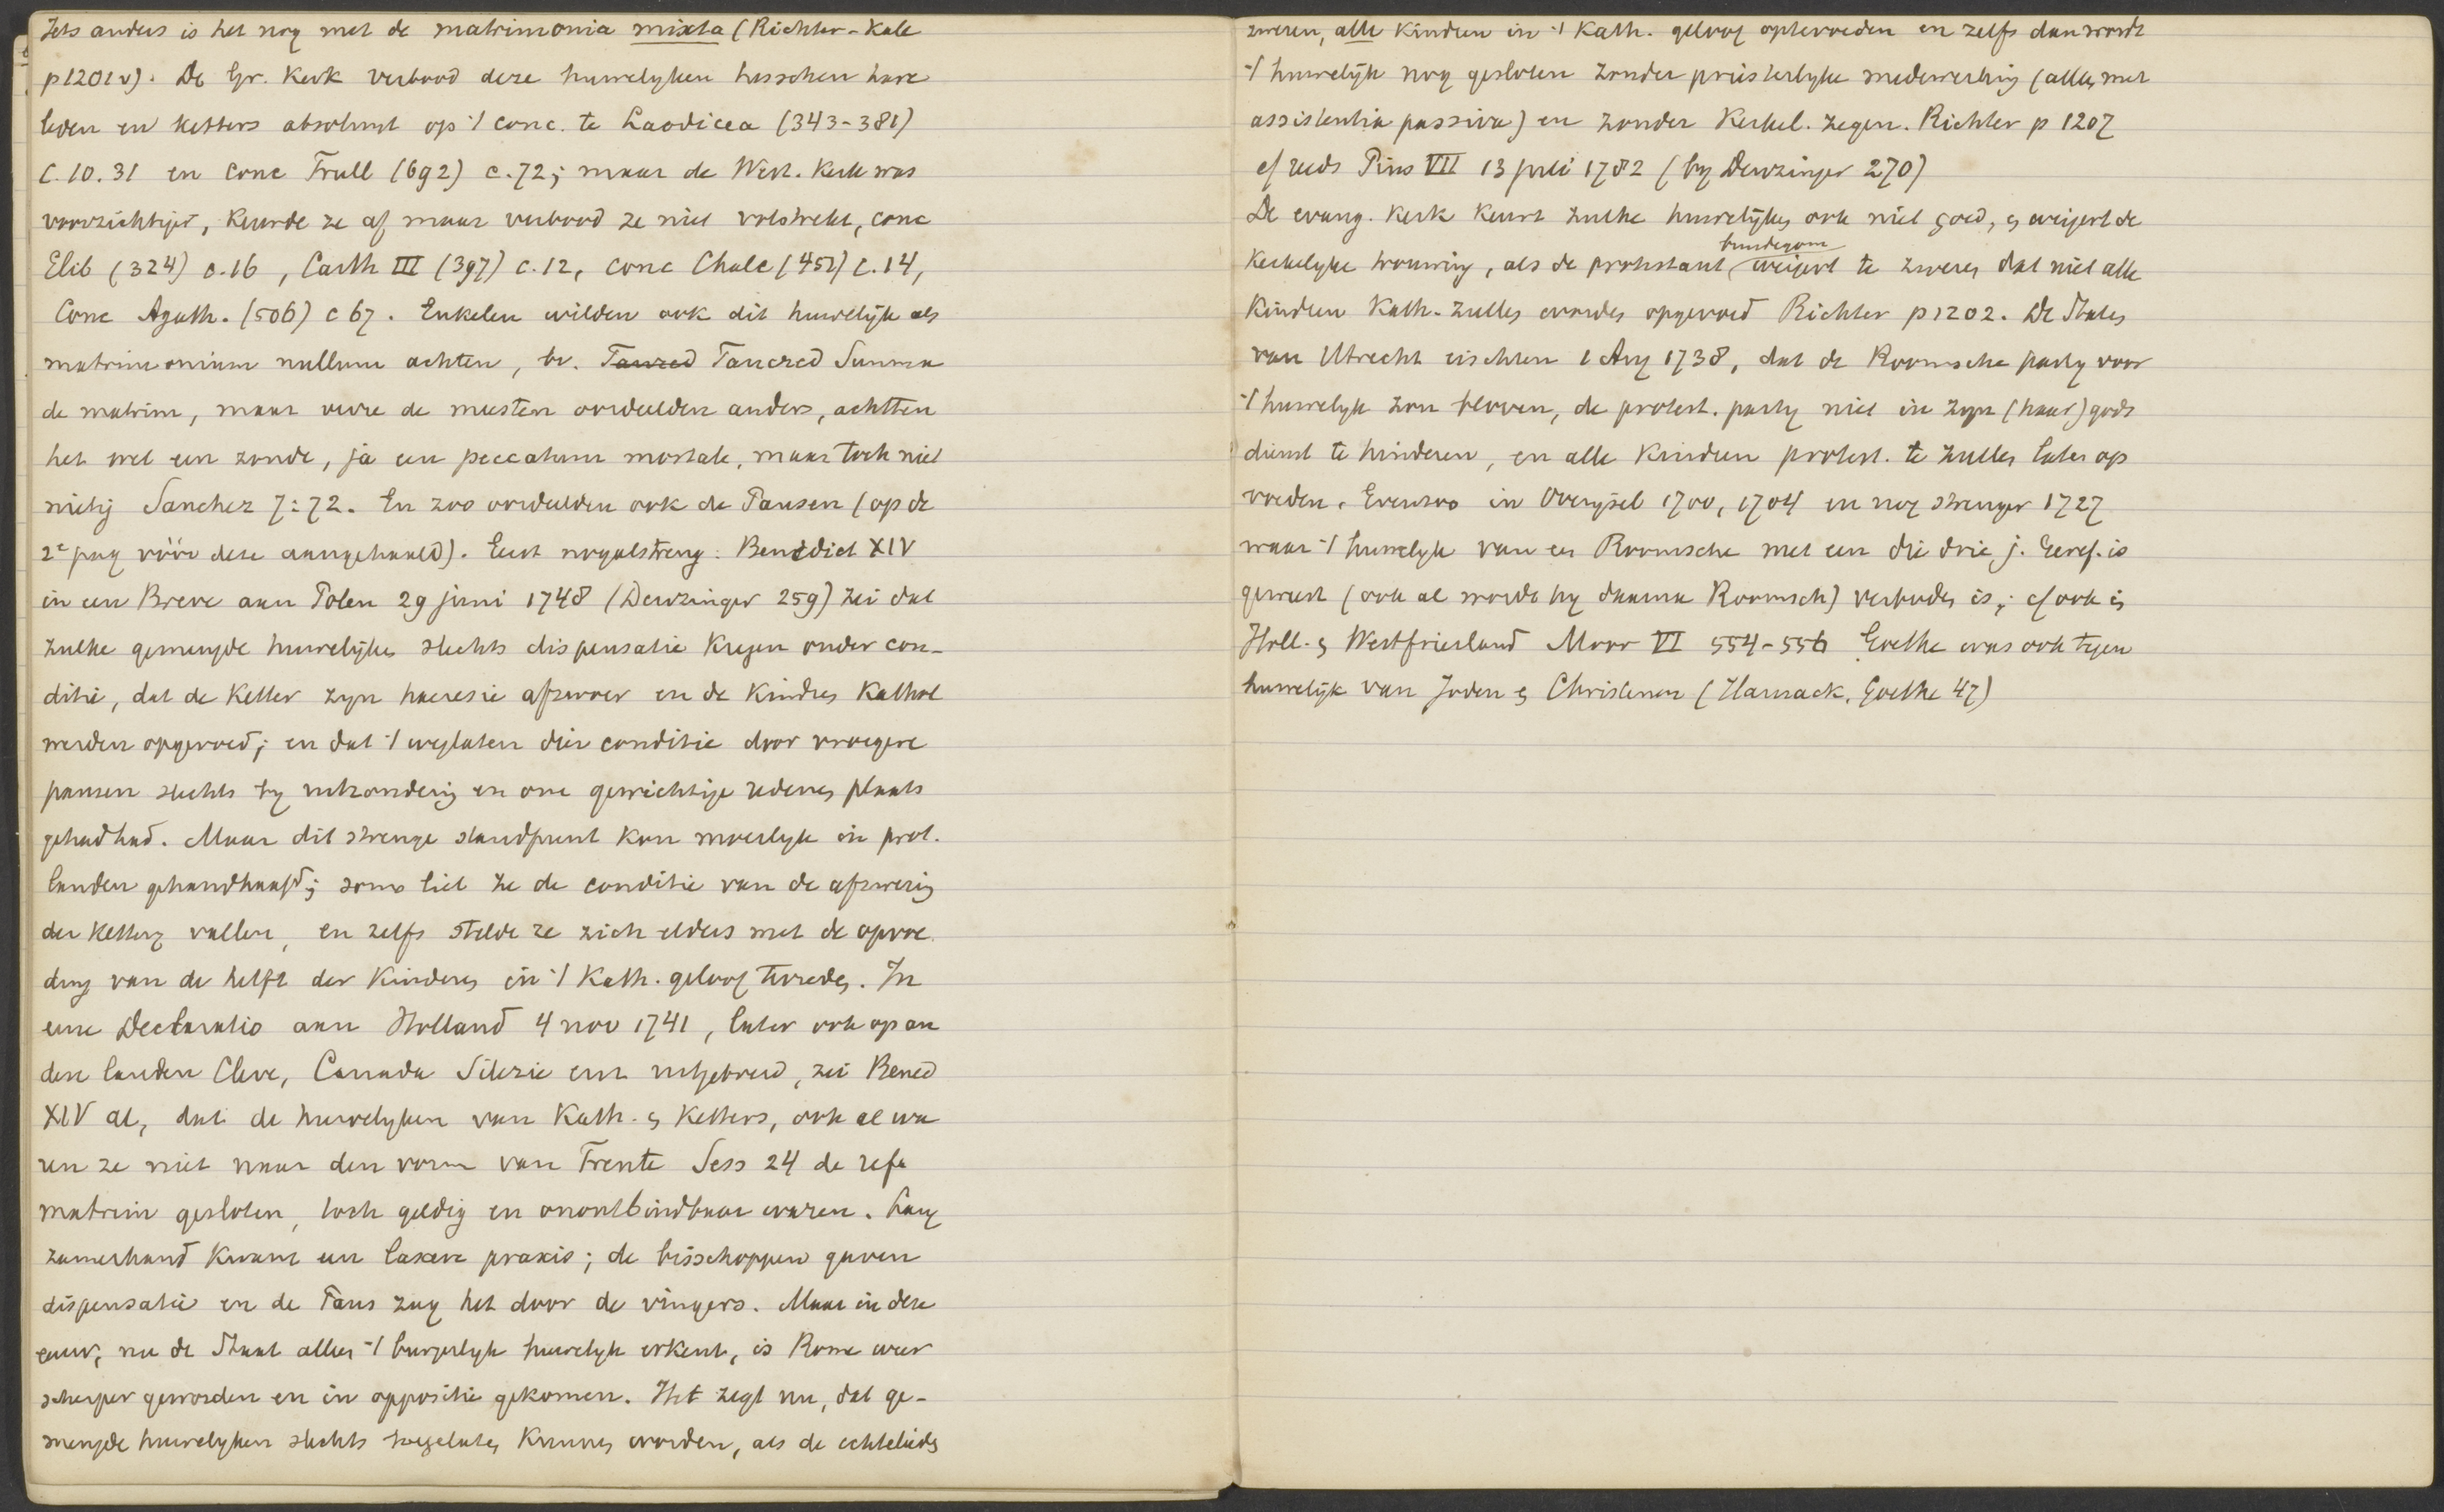 Iets anders is het nog met de matrimonia mixta (Richter-Kale
p1201v). De Gr. Kerk verbood deze huwelyken tusschen hare
leden en Ketters absoluut op 't conc. te Laodicea (343-381)
C.10.31 en Conc Trull (692) c.72; maar de West. Kerk was
voorzichtiger, Keurde ze af maar verbood ze niet volstrekt, conc
Elib (324) c.16, Carth III (397) c.12, conc Chalc (451) c.14,
Conc Agath. (506) c 67. Enkelen wilden ook dit huwelijk als
matrimonium nullum achten, bv. Tanred Tancred Summa
de matrim, maar verre de meesten oordeelden anders, achtten
het wel een zonde, ja een peccatum mortale, maar toch niet
nietig Sanchez 7:72. En zoo oordeelden ook de Pausen (op de
2e pag vóór deze aangehaald). Eerst nogal streng. Benedict XIV
in een Breve aan Polen 29 juni 1748 (Denzinger 259) zei dat
zulke gemengde huwelijken slechts dispensatie kregen onder con-
ditie, dat de Ketter zyn haeresie afzwoer en de Kindren Kathol
werden opgevoed; en dat 't weglaten dier conditie door vroegere
pausen slechts by uitzondering en om gewichtige redenen plaats
gehad had. Maar dit strenge standpunt kon moeilyk in prot.
landen gehandhaafd; soms liet ze de conditie van de afzwering
der Kettery vallen, en zelfs stelde ze zich elders met de opvoe
ding van de helft der Kinderen in 't Kath. geloof tevreden. In
eene Declaratio aan Holland 4 nov 1741, later ook op an
dere landen Cleve, Canada Silezie enz uitgebreid, zei Bened
XIV al, dat de huwelyken van Kath. en Ketters, ook al wa
ren ze niet naar den vorm van Trente Sess 24 de refo
matrim gesloten, toch geldig en onontbindbaar waren. Lang
zamerhand kwam een laxere praxis; de bisschoppen gaven
dispensatie en de Paus zag het door de vingers. Maar in deze
eeuw, nu de Staat alleen 't burgerlyk huwelyk erkent, is Rome weer
scherper geworden en in oppositie gekomen. Het zegt nu, dat ge-
mengde huwelyken slechts toegelaten kunnen worden, als de echtelieden
zweren, alle Kindren in 't Kath. geloof optevoeden en zelfs dan wordt
't huwelijk nog gesloten zonder priesterlyke medewerking (alleen met
assistentia passiva) en zonder Kerkel. zegen. Richter p 1207
cf reeds Pius VII 13 juli 1782 (by Denzinger 270)
De evang. Kerk Keurt zulke huwelijken ook niet goed, en weigert de
bruidegom
Kerkelyke trouwing, als de protestant weigert te zweren dat niet alle
Kindren Kath. zullen worden opgevoed Richter p1202. De Staten
van Utrecht eischten 1 Aug 1738, dat de Roomsche party voor
't huwelyk zou beloven, de protest. party niet in zyn (haar) gods
dienst te hinderen, en alle Kindren protest. te zullen laten op
voeden. Evenzoo in Overijsel 1700, 1704 en nog strenger 1727
waar 't huwelyk van een Roomsche met een die drie j. Geref. is
geweest (ook al wordt hy daarna Roomsch) verboden is; cf ook in
Holl. en Westfriesland Moor VI 554-556 Goethe was ook tegen
huwelijk van Joden en Christenen (Harnack, Goethe 47)